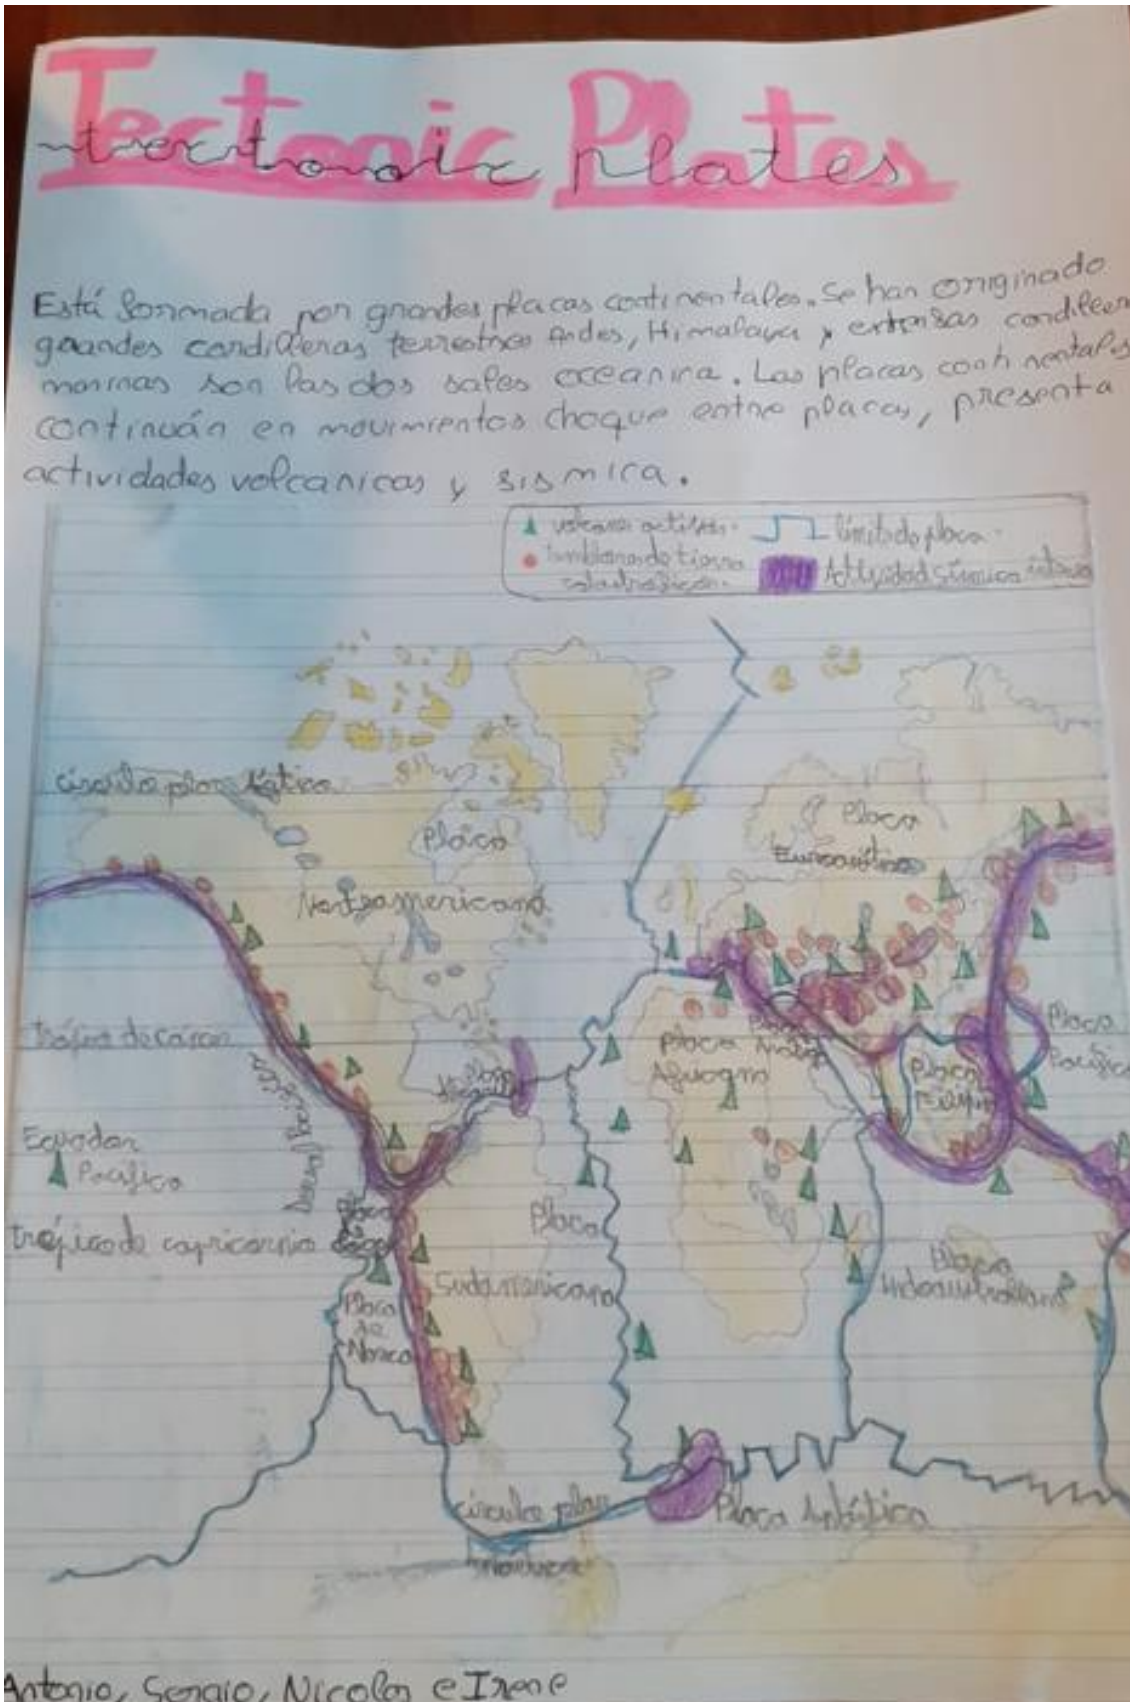 Tectonic Plates
tectonic plates
Está formada por grandes placas continentales. Se han originado
grandes cordilleras terrestres Andes, Himalaya y extensas
marinas son las dos sales oceanica. Las placas continentales
continuán en movimientos choque entre placas, presenta
actividades volcanicas y sismica.
volcanes activos. límite de placa.
temblores de tierra Actividad sísmica intensa
círculo polar
Placa
Norteamericana
Placa
Euroasiática
trópico de cáncer
Placa
Africana
Placa
Pacífica
Placa
Ecuador
Pacífico
trópico de capricornio
Placa
Sudamericana
Placa
de
Nazca
Placa
Indoaustraliana
círculo polar
Placa Antártica
Antonio, Sergio, Nicolas e Irene